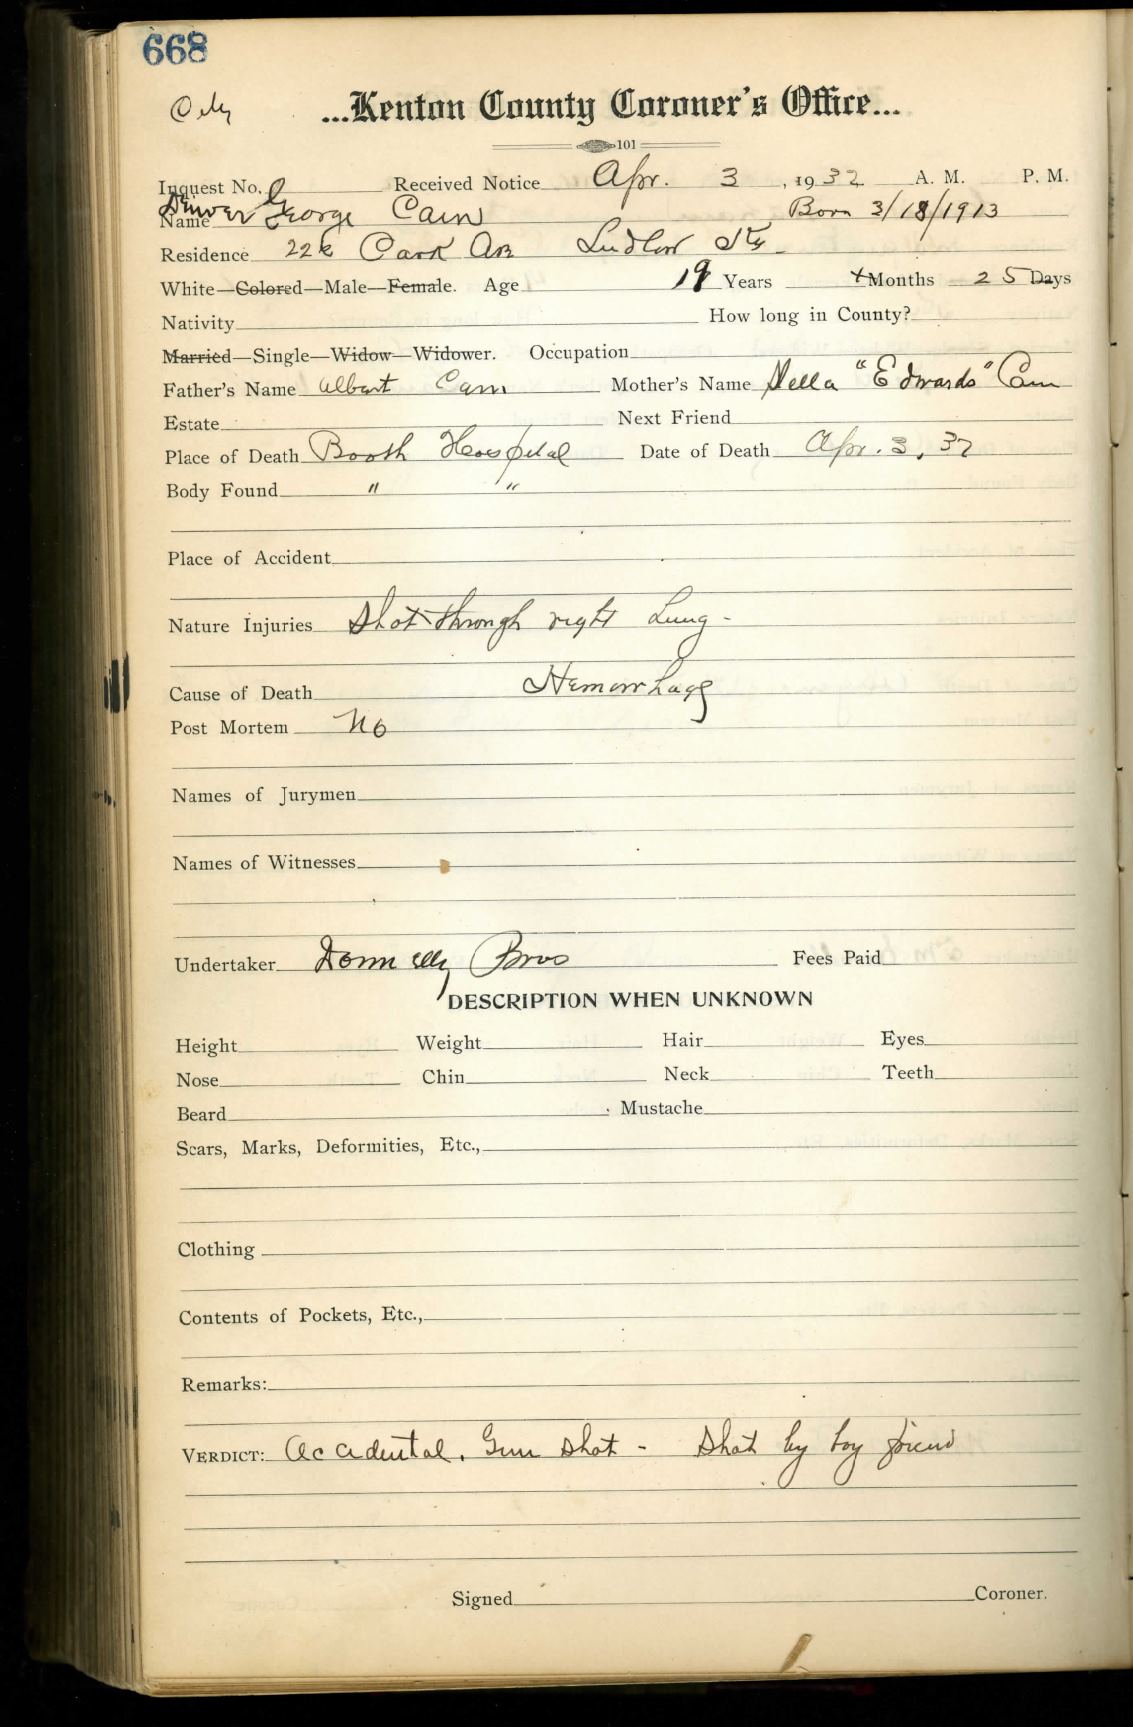 668
City
...Kenton County Coroner's Office...
101
Inquest No. Received Notice Apr. 3, 1932 A. M. P. M.
Name Denver George Cain Born 3/18/1913
Residence 22 Park Av Ludlow Ky.
White—Colored—Male—Female. Age 19 Years Months 25 Days
Nativity How long in County?
Married—Single—Widow—Widower. Occupation
Father's Name Albert Cain Mother's Name Stella "Edwards" Cain
Estate Next Friend
Place of Death Booth Hospital Date of Death Apr. 3, 32
Body Found " "
Place of Accident
Nature Injuries Shot through right Lung -
Cause of Death Hemorrhage
Post Mortem No
Names of Jurymen
Names of Witnesses
Undertaker Donnelly Bros Fees Paid
DESCRIPTION WHEN UNKNOWN
Height Weight Hair Eyes
Nose Chin Neck Teeth
Beard Mustache
Scars, Marks, Deformities, Etc.,
Clothing
Contents of Pockets, Etc.,
Remarks:
VERDICT: Accidental. Gun shot - Shot by boy friend
Signed Coroner.